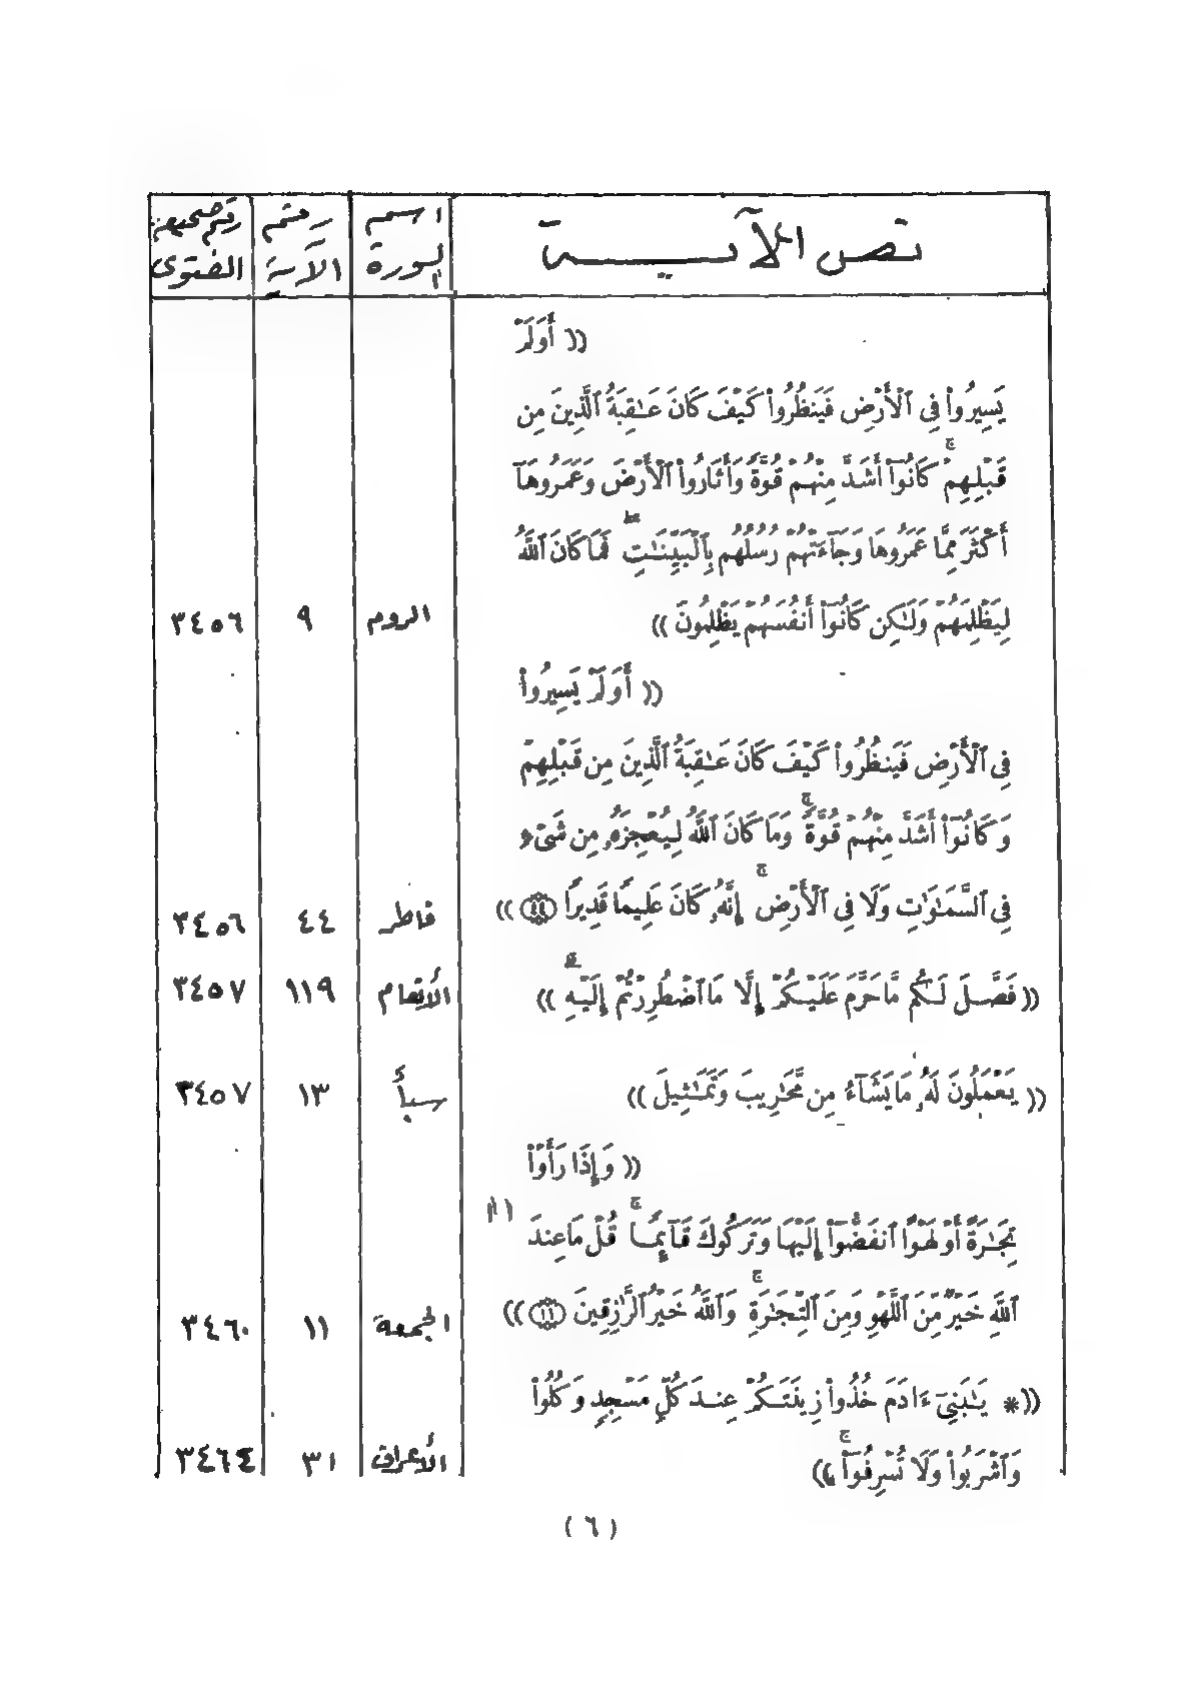 نص الآيـــــة اسم رقم رقم صحيفة
السورة الآية الفتوى
(( أَوَلَمْ
يَسِيرُوا۟ فِى ٱلْأَرْضِ فَيَنظُرُوا۟ كَيْفَ كَانَ عَـٰقِبَةُ ٱلَّذِينَ مِن
قَبْلِهِمْ ۚ كَانُوٓا۟ أَشَدَّ مِنْهُمْ قُوَّةً وَأَثَارُوا۟ ٱلْأَرْضَ وَعَمَرُوهَآ
أَكْثَرَ مِمَّا عَمَرُوهَا وَجَآءَتْهُمْ رُسُلُهُم بِٱلْبَيِّنَـٰتِ ۖ فَمَا كَانَ ٱللَّهُ
لِيَظْلِمَهُمْ وَلَـٰكِن كَانُوٓا۟ أَنفُسَهُمْ يَظْلِمُونَ )) الروم ٩ ٣٤٥٦
(( أَوَلَمْ يَسِيرُوا۟
فِى ٱلْأَرْضِ فَيَنظُرُوا۟ كَيْفَ كَانَ عَـٰقِبَةُ ٱلَّذِينَ مِن قَبْلِهِمْ
وَكَانُوٓا۟ أَشَدَّ مِنْهُمْ قُوَّةً ۚ وَمَا كَانَ ٱللَّهُ لِيُعْجِزَهُۥ مِن شَىْءٍ
فِى ٱلسَّمَـٰوَٰتِ وَلَا فِى ٱلْأَرْضِ ۚ إِنَّهُۥ كَانَ عَلِيمًا قَدِيرًا ٤٤ )) فاطر ٤٤ ٣٤٥٦
(( فَصَّلَ لَكُم مَّا حَرَّمَ عَلَيْكُمْ إِلَّا مَا ٱضْطُرِرْتُمْ إِلَيْهِ ۗ )) الأنعام ١١٩ ٣٤٥٧
(( يَعْمَلُونَ لَهُۥ مَا يَشَآءُ مِن مَّحَـٰرِيبَ وَتَمَـٰثِيلَ )) سبأ ١٣ ٣٤٥٧
(( وَإِذَا رَأَوْا۟
تِجَـٰرَةً أَوْ لَهْوًا ٱنفَضُّوٓا۟ إِلَيْهَا وَتَرَكُوكَ قَآئِمًا ۚ قُلْ مَا عِندَ
ٱللَّهِ خَيْرٌ مِّنَ ٱللَّهْوِ وَمِنَ ٱلتِّجَـٰرَةِ ۚ وَٱللَّهُ خَيْرُ ٱلرَّٰزِقِينَ ١١ )) الجمعة ١١ ٣٤٦٠
(( * يَـٰبَنِىٓ ءَادَمَ خُذُوا۟ زِينَتَكُمْ عِندَ كُلِّ مَسْجِدٍ وَكُلُوا۟
وَٱشْرَبُوا۟ وَلَا تُسْرِفُوٓا۟ ۚ )) الأعراف ٣١ ٣٤٦٤
( ٦ )